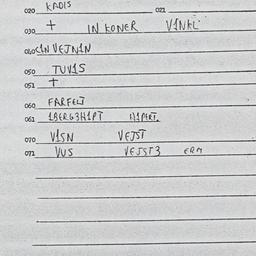 020 KADIS 021
030 + IN KONER VINKL
040 CIN VEJNIN
050 TUVIS
051 +
060 FARFELT
061
070 VISN VEJST
071 VUS VEJST3 ERM